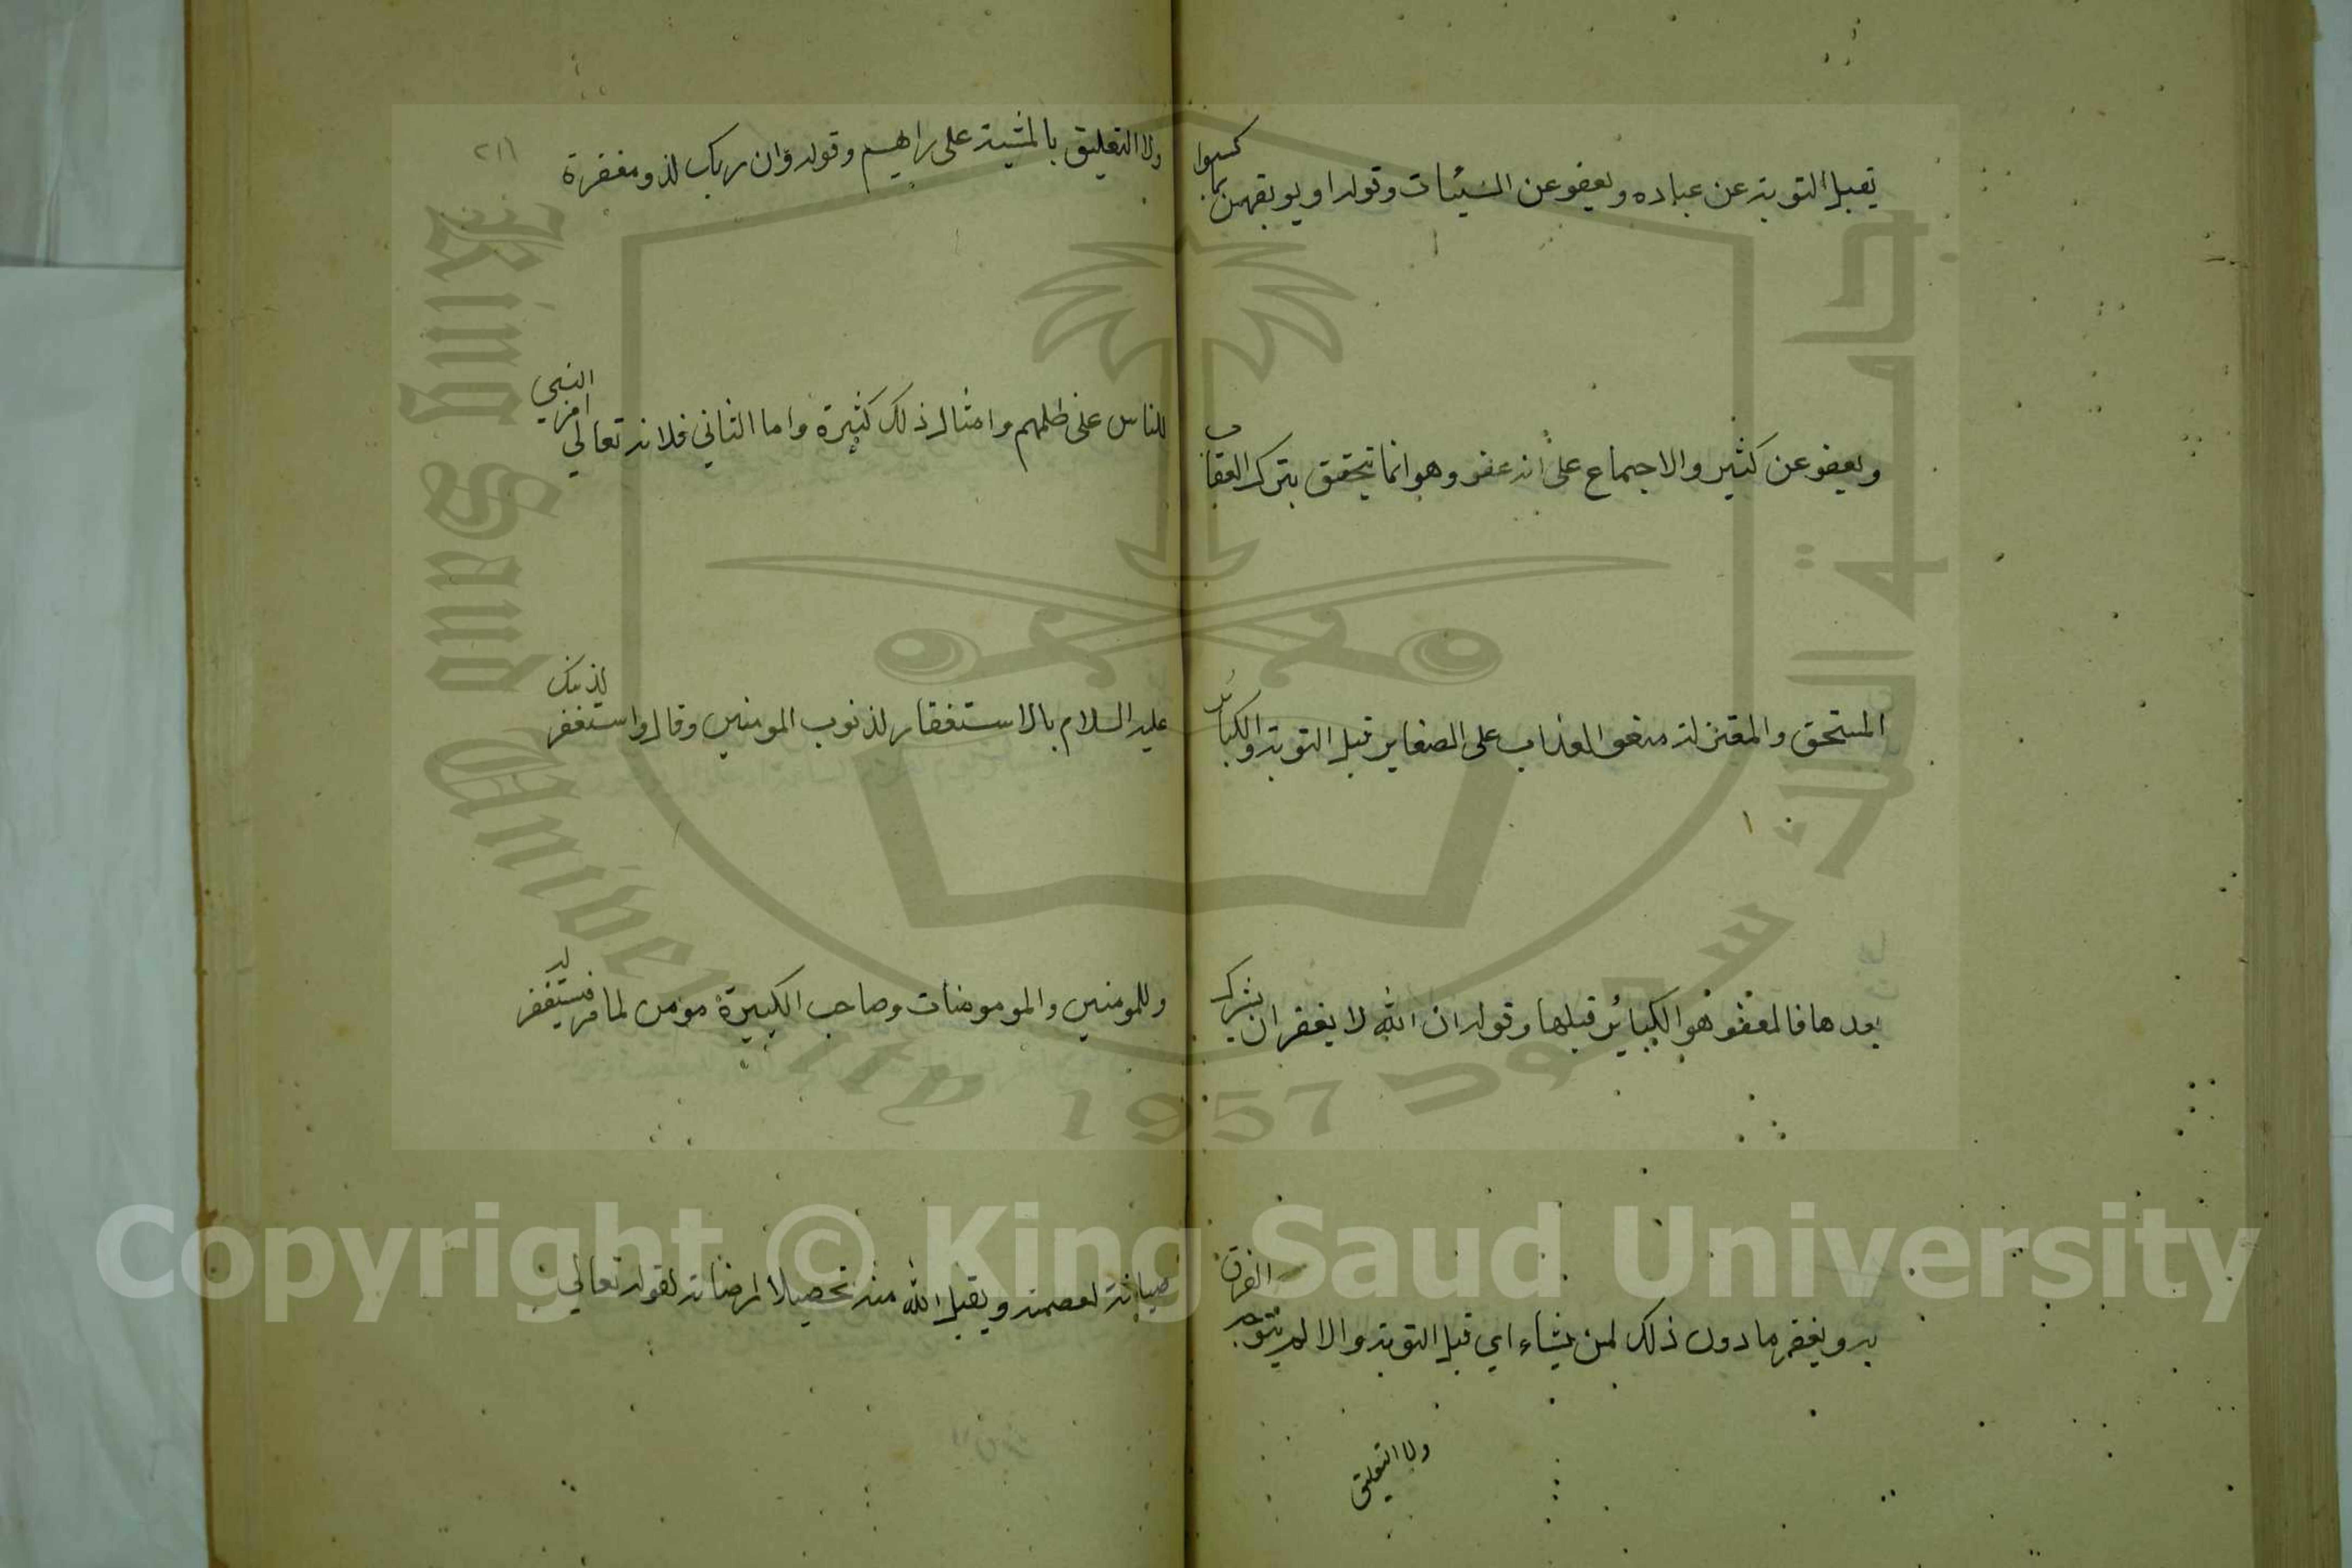 يقبل التوبة عن عباده ويعفو عن السيئات وقوله او يوبقهن بما كسبوا
ويعفو عن كثير والاجماع على انه عفو وهو انما يتحقق بترك العقاب
المستحق والمعتزلة منعوا العذاب على الصغاير قبل التوبة والكبائر
بعدها فالمعفو هو الكبائر قبلها وقوله ان الله لا يغفر ان يشرك
به ويغفر ما دون ذلك لمن يشاء اي قبل التوبة والا لم يتوجه الفرق
ولا التعليق
٢١١
ولا التعليق بالمشية على رايهم وقوله وان ربك لذو مغفرة
للناس على ظلمهم وامثال ذلك كثيرة واما الثاني فلانه تعالى امر النبي
عليه السلام بالاستغفار لذنوب المومنين وقال واستغفر لذنبك
وللمومنين والمومومنات وصاحب الكبيرة مومن لما مر فيستغفر له
صيانة لعصمته ويقبل الله منه تحصيلا لمرضاته لقوله تعالى
King Saud University
جامعة الملك سعود
1957
Copyright © King Saud University